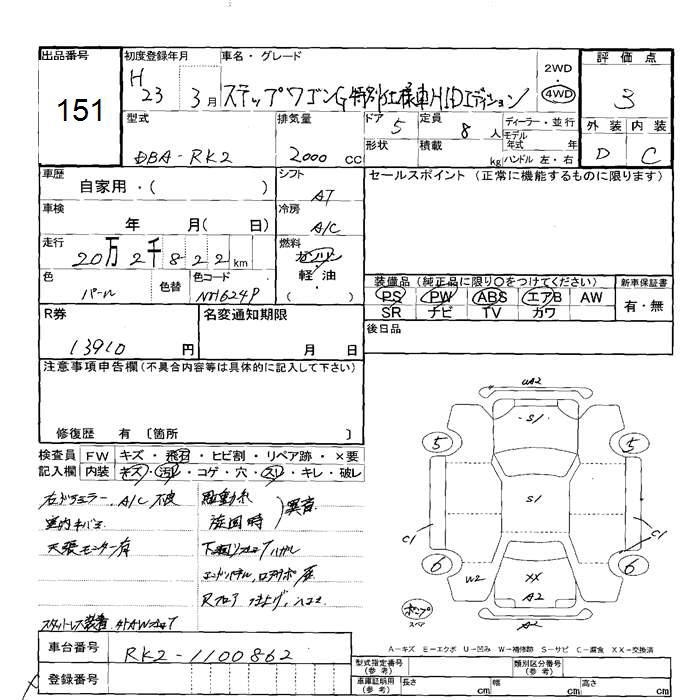 出品番号
151
初度登録年月
H 23 3月
車名・グレード
ステップワゴンG特別仕様車HIDエディション
2WD
・
4WD
評価点
3
外装 内装
D C
型式
DBA-RK2
排気量
2000 cc
ドア 5
定員 8 人
形状
積載 kg
ディーラー・並行
モデル年式 年
ハンドル 左・右
車歴
自家用・( )
シフト
AT
セールスポイント (正常に機能するものに限ります)
車検
年 月( 日)
冷房
A/C
走行
20万2千822km
燃料
ガソリン
軽油
( )
色
パール
色替
色コード
NH624P
装備品(純正品に限り○をつけてください)
新車保証書
PS PW ABS エアB AW
SR ナビ TV カワ
有・無
R券
13910 円
名変通知期限
月 日
後日品
注意事項申告欄(不具合内容等は具体的に記入して下さい)
修復歴 有 〔箇所 〕
検査員
記入欄
FW キズ・飛石・ヒビ割・リペア跡・×要
内装 キズ・汚レ・コゲ・穴・スレ・キレ・破レ
右ドアミラー、A/C不良
室内キバミ
天張モニター有
駆動系
旋回時
異音
UA2
S1
5
5
S1
C1
C1
6
6
W2
XX
A2
A2
ポンプ
スペア
A-キズ E-エクボ U-凹み W-補修跡 S-サビ C-腐食 XX-交換済
車台番号
RK2-1100862
登録番号
型式指定番号
(参考)
類別区分番号
(参考)
車庫証明用
(参考)
長さ cm
幅 cm
高さ cm